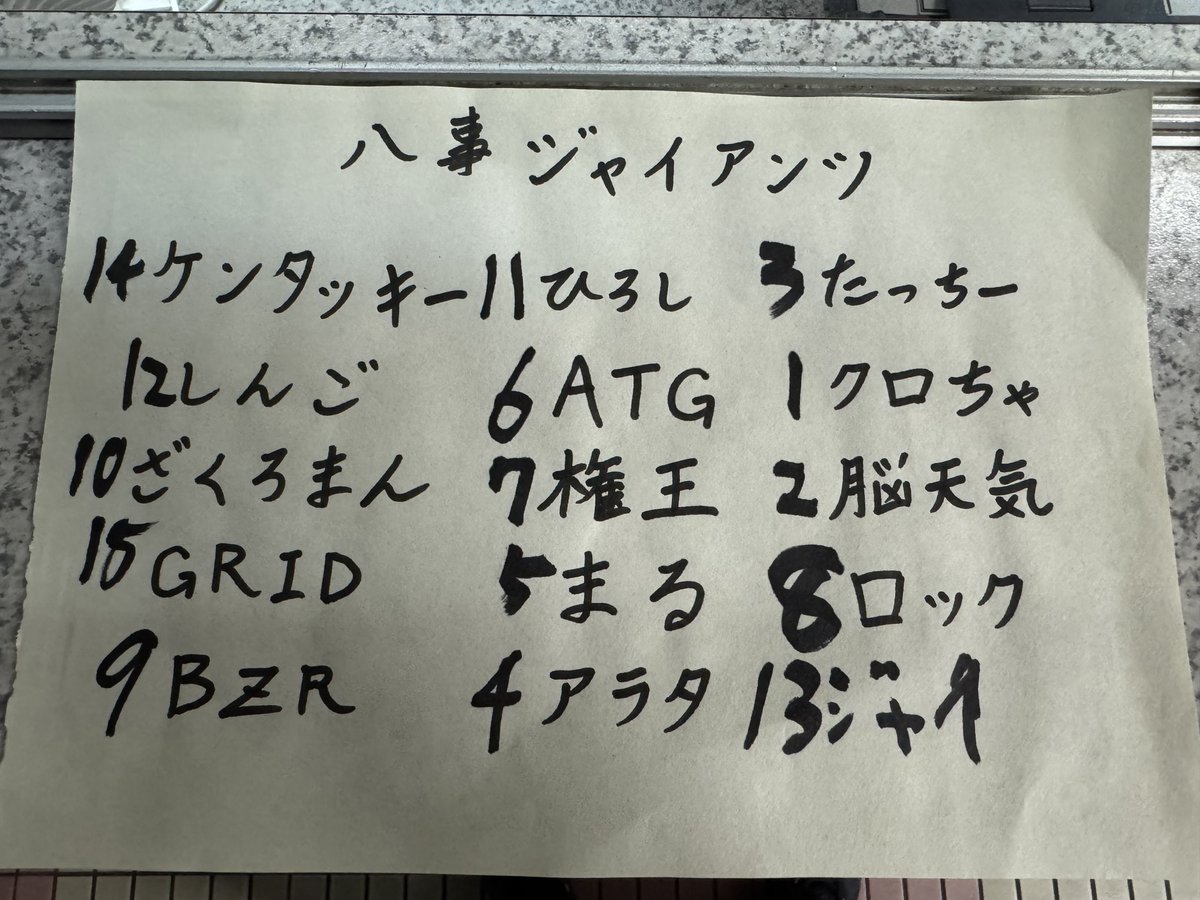 八事ジャイアンツ
14ケンタッキー 11ひろし 3たっちー
12しんご 6ATG 1クロちゃ
10ざくろまん 7権王 2脳天気
15GRID 5まる 8ロック
9BZR 4アラタ 13ジャイ